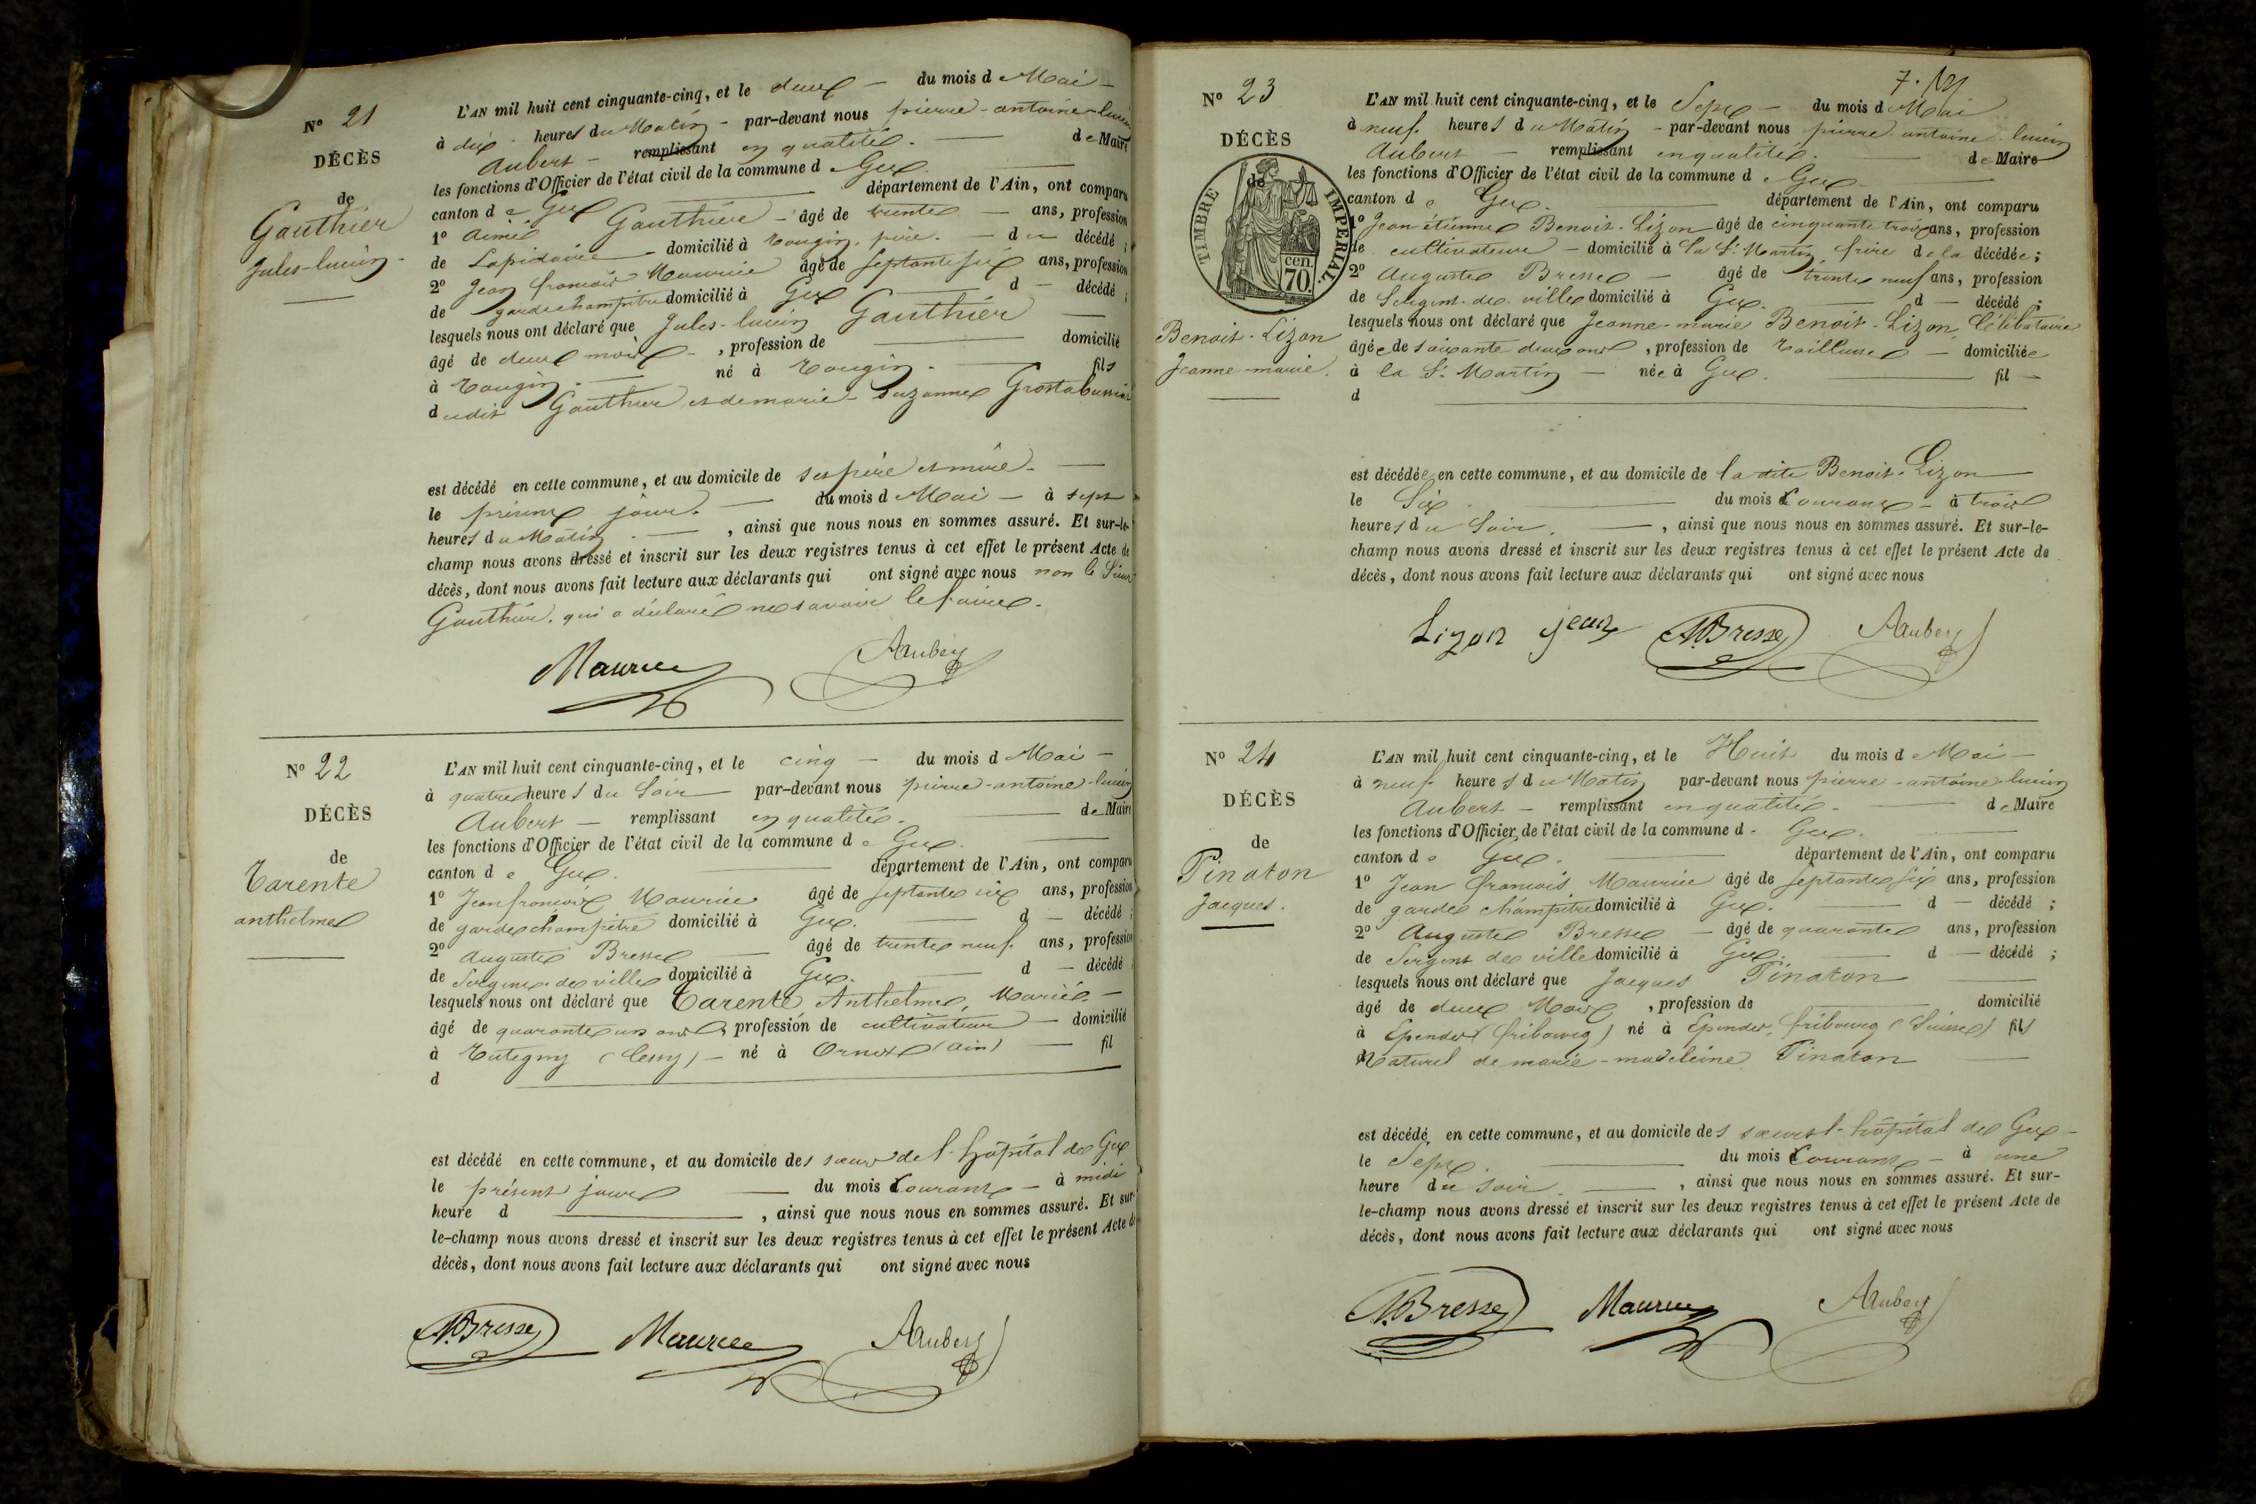 N° 21
DÉCÈS
de
Gauthier
Jules-lucien
L'AN mil huit cent cinquante-cinq, et le deux — du mois d Mai —
à dix heures du Matin — par-devant nous pierre-antoine-lucien
Aubert — remplissant en qualité — de Maire
les fonctions d'Officier de l'état civil de la commune d Gex
canton de Gex — département de l'Ain, ont comparu
1° Aimé Gauthier — âgé de trente — ans, profession
de Lapidaire — domicilié à Tougin, père — du décédé ;
2° Jean françois Maurice âgé de septante six ans, profession
de garde champêtre domicilié à Gex — d — décédé ;
lesquels nous ont déclaré que Jules-lucien Gauthier —
âgé de deux mois —, profession de — domicilié
à Tougin — né à Tougin — fils
dudit Gauthier et de marie-Suzanne
est décédé en cette commune, et au domicile de ses père et mère —
le présent jour — du mois d Mai — à sept
heures du Matin —, ainsi que nous nous en sommes assuré. Et sur-le-
champ nous avons dressé et inscrit sur les deux registres tenus à cet effet le présent Acte de
décès, dont nous avons fait lecture aux déclarants qui ont signé avec nous non le Sieur
Gauthier, qui a déclaré ne savoir le faire.
Maurice Aubert
N° 22
DÉCÈS
de
Tarente
anthelme
L'AN mil huit cent cinquante-cinq, et le cinq — du mois d Mai —
à quatre heures du Soir — par-devant nous pierre-antoine-lucien
Aubert — remplissant en qualité — de Maire
les fonctions d'Officier de l'état civil de la commune de Gex
canton de Gex — département de l'Ain, ont comparu
1° Jean françois Maurice âgé de septante six ans, profession
de garde champêtre domicilié à Gex — d — décédé ;
2° Auguste Bresse — âgé de trente neuf ans, profession
de Sergent de ville domicilié à Gex — d — décédé ;
lesquels nous ont déclaré que Tarente Anthelme, Marié —
âgé de quarante un ans, profession de cultivateur — domicilié
à Tutegny (Cessy) — né à Ornex (ain) — fil
d
est décédé en cette commune, et au domicile des sœurs de l'hôpital de Gex
le présent jour — du mois Courant — à midi
heure d —, ainsi que nous nous en sommes assuré. Et sur-
le-champ nous avons dressé et inscrit sur les deux registres tenus à cet effet le présent Acte de
décès, dont nous avons fait lecture aux déclarants qui ont signé avec nous
A. Bresse Maurice Aubert
7.
N° 23
DÉCÈS
de
TIMBRE IMPÉRIAL.
70 cen.
Benoit-Lizon
Jeanne-marie.
L'AN mil huit cent cinquante-cinq, et le Sept — du mois d Mai
à neuf heures du Matin — par-devant nous pierre-antoine-lucien
Aubert — remplissant en qualité — de Maire
les fonctions d'Officier de l'état civil de la commune d Gex
canton de Gex — département de l'Ain, ont comparu
1° Jean étienne Benoit-Lizon âgé de cinquante trois ans, profession
de cultivateur — domicilié à la St Martin, frère de la décédée ;
2° Auguste Bresse — âgé de trente neuf ans, profession
de Sergent de ville domicilié à Gex — d — décédé ;
lesquels nous ont déclaré que Jeanne-marie Benoit-Lizon, Célibataire
âgée de soixante deux ans, profession de Tailleuse — domiciliée
à la St Martin — née à Gex — fil —
d
est décédée en cette commune, et au domicile de la dite Benoit-Lizon
le Six — du mois Courant — à trois
heures du Soir —, ainsi que nous nous en sommes assuré. Et sur-le-
champ nous avons dressé et inscrit sur les deux registres tenus à cet effet le présent Acte de
décès, dont nous avons fait lecture aux déclarants qui ont signé avec nous
Lizon jean A. Bresse Aubert
N° 24
DÉCÈS
de
Pinaton
Jacques.
L'AN mil huit cent cinquante-cinq, et le Huit du mois d Mai —
à neuf heures du Matin par-devant nous pierre-antoine-lucien
Aubert — remplissant en qualité — de Maire
les fonctions d'Officier de l'état civil de la commune d Gex
canton de Gex — département de l'Ain, ont comparu
1° Jean françois Maurice âgé de septante six ans, profession
de garde champêtre domicilié à Gex — d — décédé ;
2° Auguste Bresse — âgé de quarante ans, profession
de Sergent de ville domicilié à Gex — d — décédé ;
lesquels nous ont déclaré que Jacques Pinaton —
âgé de deux Mois, profession de — domicilié
à Ependes (fribourg) né à Ependes, fribourg (Suisse) fils
Naturel de marie-madeleine Pinaton —
est décédé en cette commune, et au domicile des sœurs l'hôpital de Gex —
le Sept — du mois Courant — à une
heure du soir —, ainsi que nous nous en sommes assuré. Et sur-
le-champ nous avons dressé et inscrit sur les deux registres tenus à cet effet le présent Acte de
décès, dont nous avons fait lecture aux déclarants qui ont signé avec nous
A. Bresse Maurice Aubert